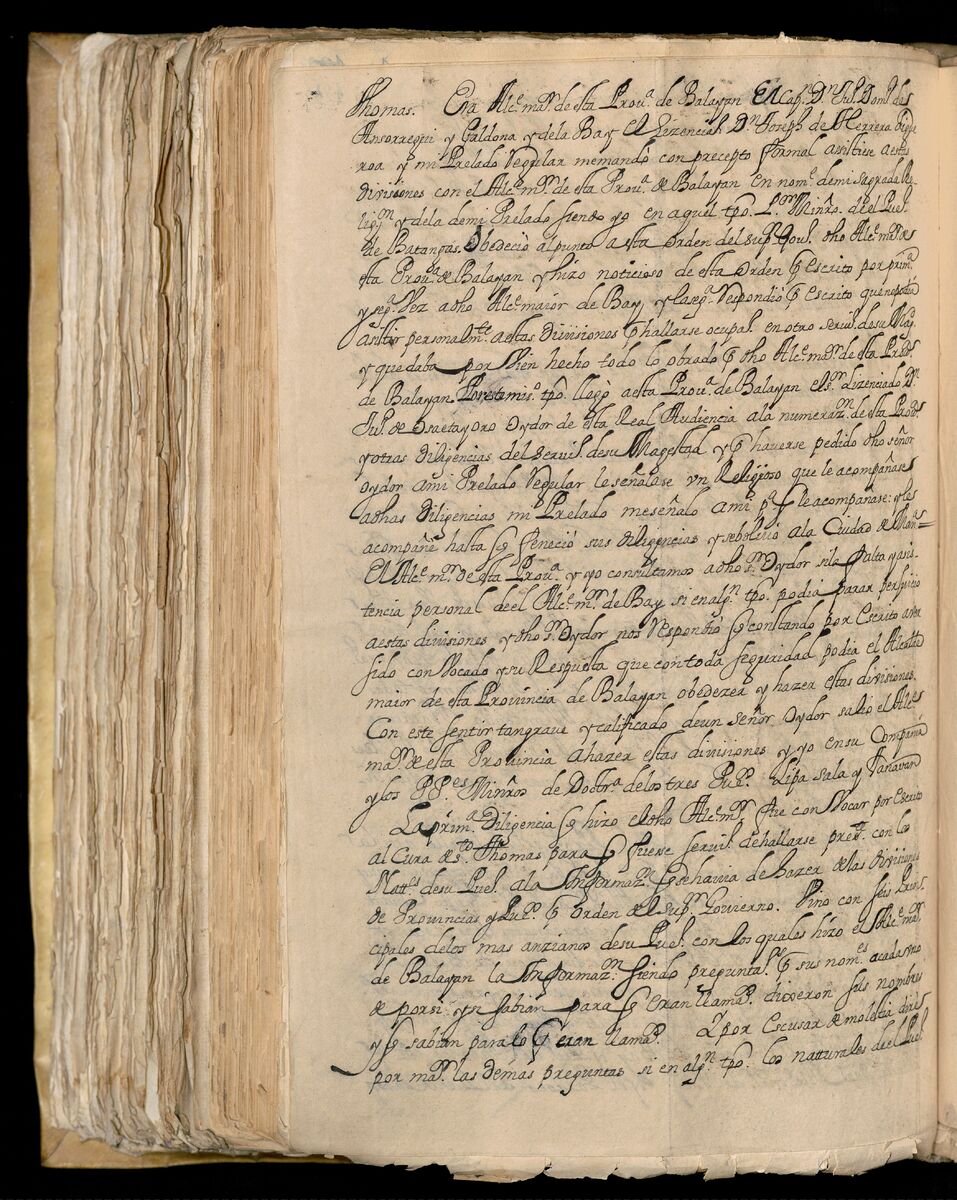 Thomas. Era Alc.e ma.r de esta Prou.a de Balayan El Cap.n D.n Ju.o Dom.o de
Ansorregui y Galdona y de la Bay el Lizenciad.o D.n Joseph de Herrera Figue
roa y mi Prelado Regular memando con precepto formal assitiese a estas
divissiones con el Alc.e m.r de esta Prou.a de Balayan En nom.e de mi Sagrada Re
lig.on y de la de mi Prelado siendo yo en aquel tpo. P.r Minro. de el Pue.o
de Batangas. Obedeció al punto a esta orden del sup.r Gou.o dho Alc.e ma.r de
esta Prou.a de Balayan y hizo noticioso de esta orden p Escrito por prim.a
y seg.a Vez a dho Alc.e maior de Bay, y la seg.a Respondió p Escrito que no podia
asistir personalm.te a estas divisiones p hallarse ocupad.o en otro serui.o de su Mag.
y que daba por bien hecho todo lo obrado p dho Alc.e ma.r de esta Prou.a
de Balayan. Por este mis.o tpo. llegó a esta Prou.a de Balayan el s.r Lizenciado D.n
Ju.o de Ozaeta y oro Oydor de esta Real Audiencia a la numeraz.on de esta Prou.a
y otras diligencias del serui.o de su Magestad y p haverse pedido dho señor
oydor a mi Prelado Regular le señalase vn Religioso que le acompañase
a dhas diligencias mi Prelado me señaló a mi p.a q le acompañase: y les
acompañé hasta q feneció sus diligencias y se bolvió a la Ciudad de Man.a
El Alc.e m.r de esta Prou.a y yo consultamos a dho s.r Oydor si la falta y asis
tencia personal de el Alc.e m.r de Bay si en alg.n tpo. podia parar perjuicio
a estas divisiones y dho s.r Oydor nos Respondió q constando por Escrito aver
sido conVocado y su Respuesta que con toda seguridad podia el Alcalde
maior de esta Provincia de Balayan obedezer y hazer estas divisiones.
Con este sentir tan graue y calificado de un señor Oydor salió el Alc.e
ma.r de esta Provincia a hazer estas divisiones y yo en su Compania
y los PP.es Minros de Doctr.a de los tres Pue.s Lipa Sala y Tanavan
La prim.a diligencia q hizo el dho Alc.e m.r fue con Vocar por Escrito
al Cura de S.to Thomas para q fuese serui.o de hallarse pres.te con los
Natt.es de su Pue.o a la Informaz.on q se havia de hazer de las divisiones
de Provincias y Pue.s p orden de el sup.r Govierno. Vino con seis Prin
cipales de los mas anzianos de su Pue.o con los quales hizo el Alc.e ma.r
de Balayan la Informaz.on siendo pregunta.s p sus nom.es a cada vno
de por si y si sabian para q eran llama.s dixeron sus nombres
y q sabian para lo q eran llama.s Y por Escusar de molestia diré
por ma.r las demas preguntas si en alg.n tpo. los natturales de el Pue.o